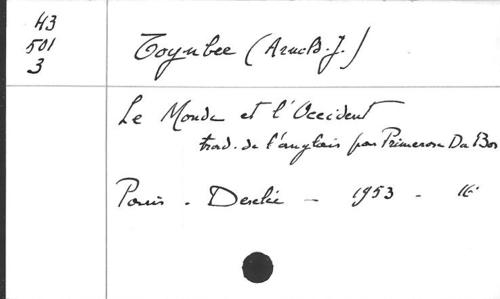 43
501
3
Toynbee (Arnold-J.)
Le Monde et l'Occident
trad. de l'anglais par Primerose Du Bos
Paris - Desclée - 1953 - 16°